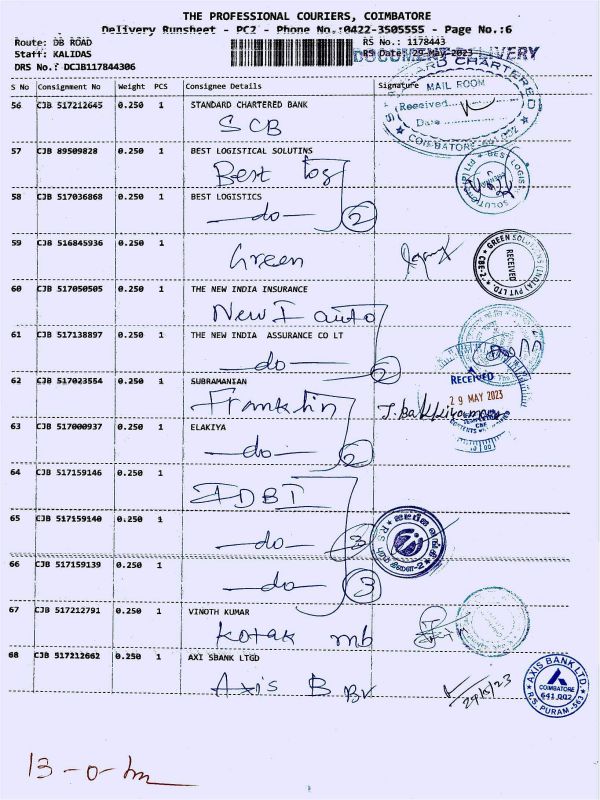 THE PROFESSIONAL COURIERS, COIMBATORE
Delivery Runsheet - PC2 - Phone No.:0422-3505555 - Page No.:6
Route: DB ROAD RS No.: 1178443
Staff: KALIDAS RS Date: 29-May-2023 DOCUMENT DELIVERY
DRS No.: DCJB117844306
S No Consignment No Weight PCS Consignee Details Signature
56 CJB 517212645 0.250 1 STANDARD CHARTERED BANK
SCB
MAIL ROOM
Received
Date
COIMBATORE-641 002
57 CJB 89509828 0.250 1 BEST LOGISTICAL SOLUTINS
Best log
58 CJB 517036868 0.250 1 BEST LOGISTICS
-do- 2
59 CJB 516845936 0.250 1
Green
GREEN SOLUTIONS (INDIA) PVT LTD. CBE-2
RECEIVED
60 CJB 517050505 0.250 1 THE NEW INDIA INSURANCE
New I auto
61 CJB 517138897 0.250 1 THE NEW INDIA ASSURANCE CO LT
-do- 2
62 CJB 517023554 0.250 1 SUBRAMANIAN
Franklin
RECEIVED
29 MAY 2023
63 CJB 517000937 0.250 1 ELAKIYA
-do- 2
64 CJB 517159146 0.250 1
IDBI
65 CJB 517159140 0.250 1
-do- 3
66 CJB 517159139 0.250 1
-do- 3
67 CJB 517212791 0.250 1 VINOTH KUMAR
Kotak mb
68 CJB 517212662 0.250 1 AXI SBANK LTGD
Axis B Br
29/5/23
AXIS BANK LTD.
COIMBATORE
641 002
R.S. PURAM-563